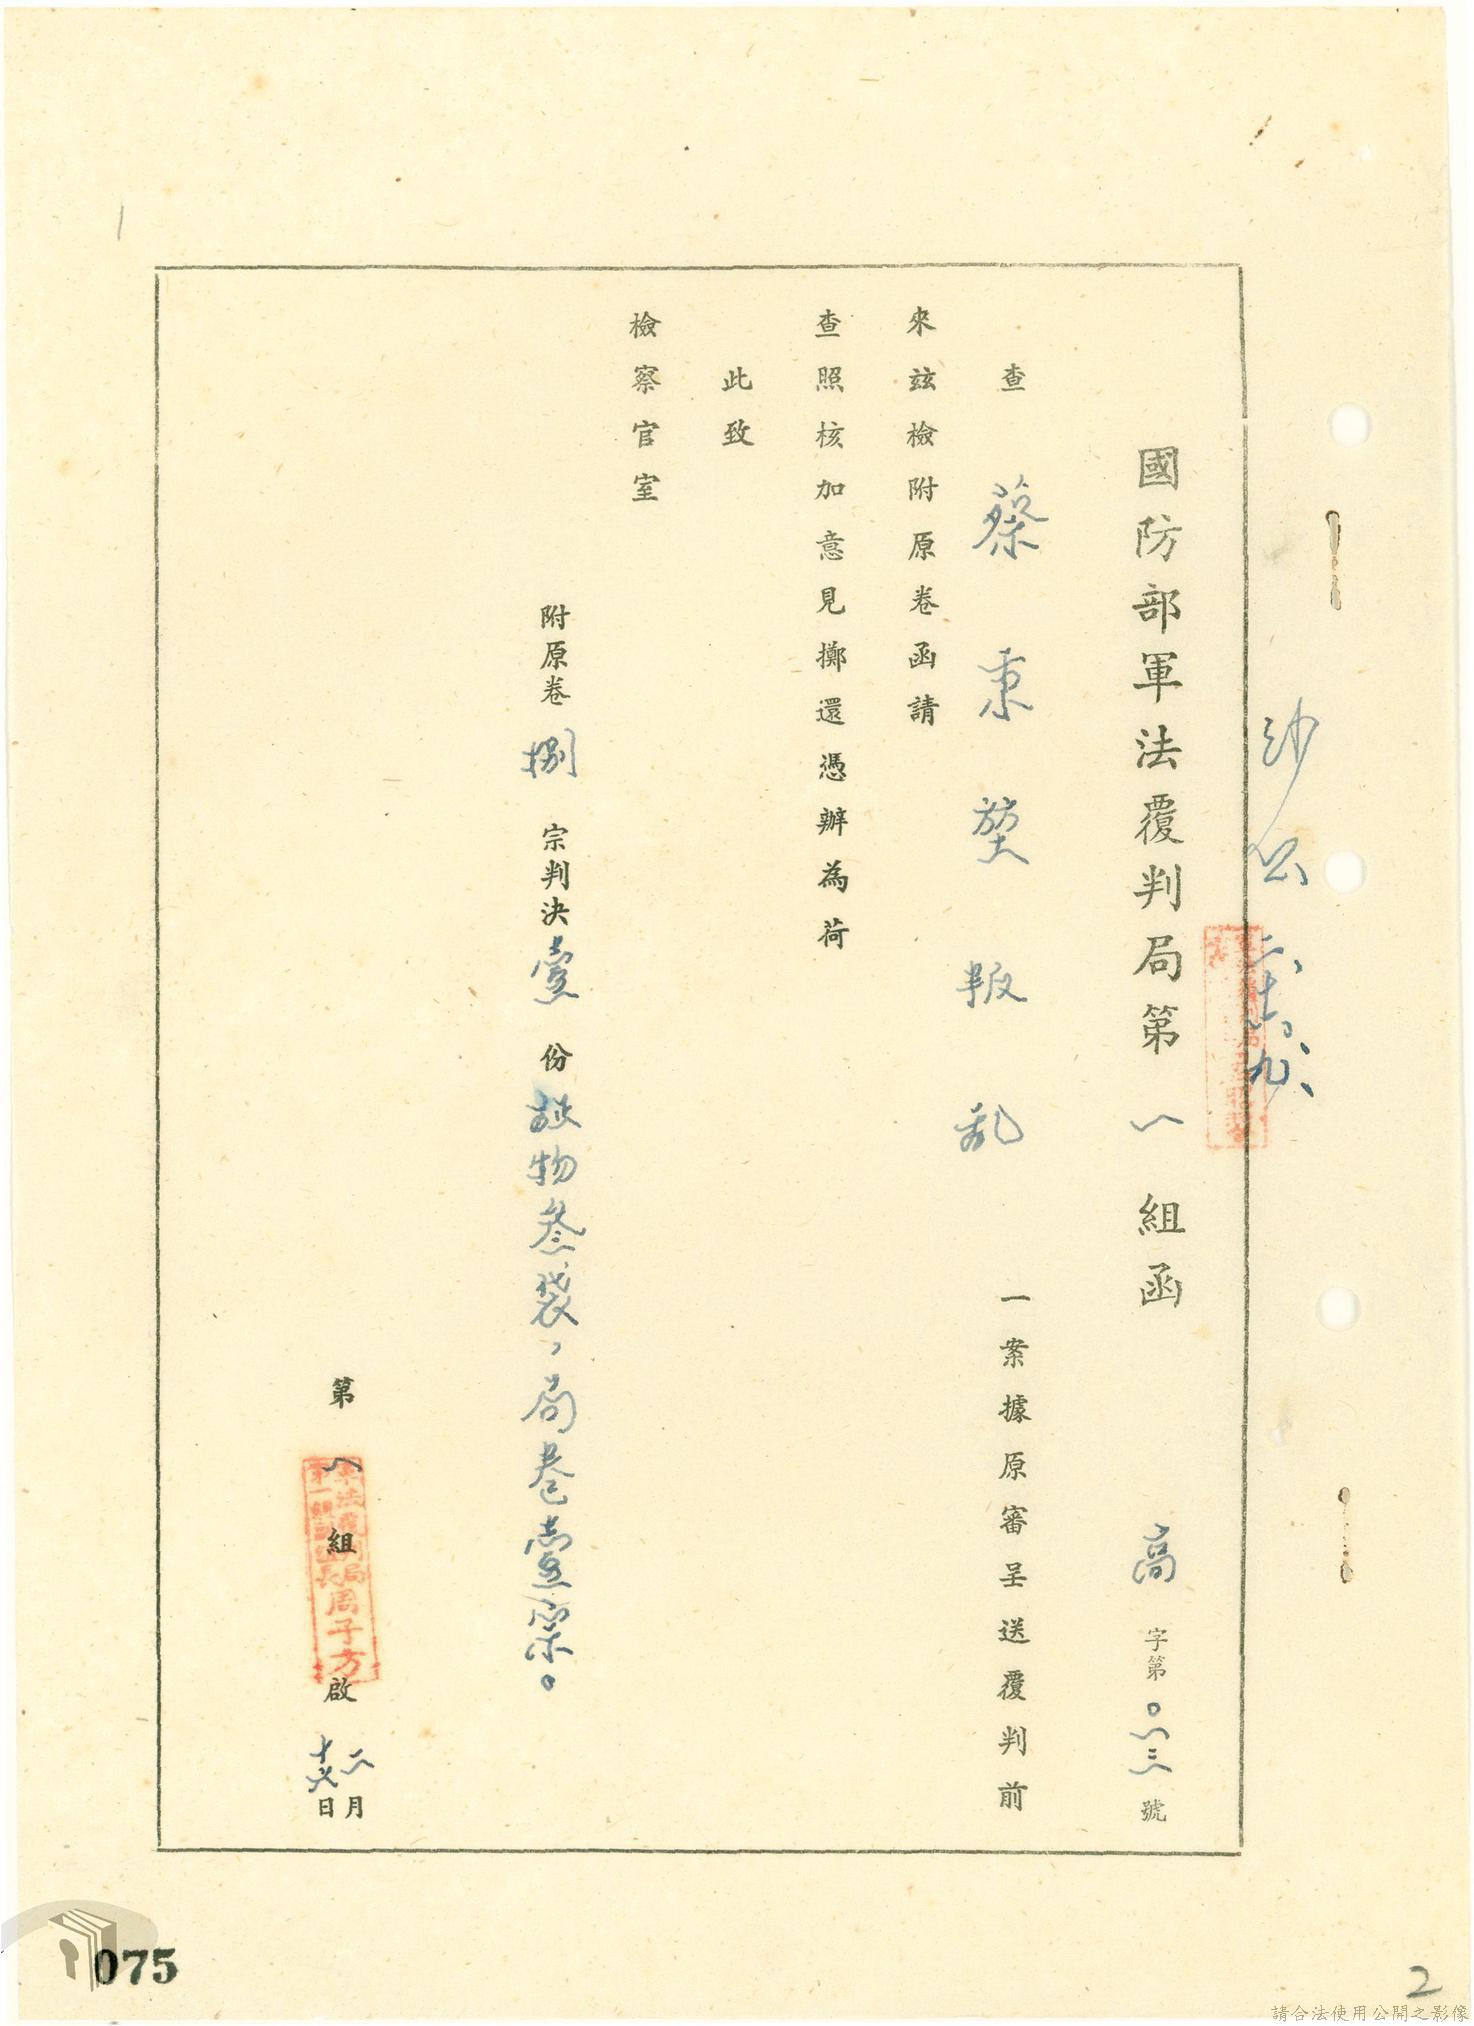 國防部軍法覆判局第一組函 高字第〇一三一號
查蔡秉堃叛乱一案據原審呈送覆判前
來茲檢附原卷函請
查照核加意見擲還憑辦為荷
此致
檢察官室
附原卷捌宗判決壹份證物叁袋，局卷壹宗。
第一組啟 二月十六日
軍法覆判局
第一組副組長周子方
075
2
請合法使用公開之影像